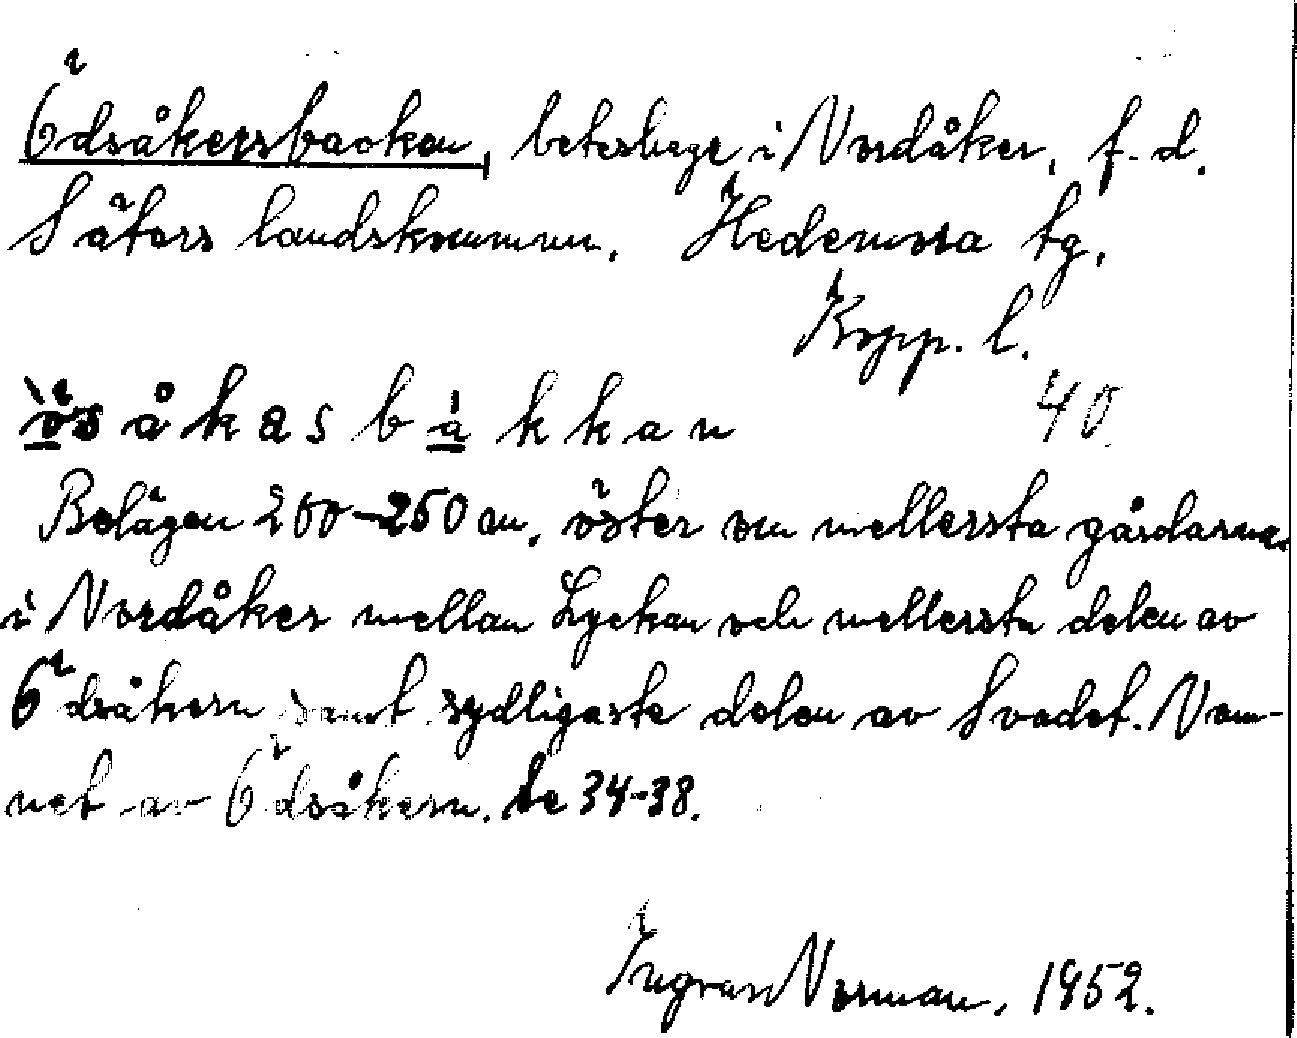 Ödsåkersbacken, beteshage i Nordåker, f.d.
Säters landskommun. Hedemora tg,
Kopp. l.
ösåkasbakkan 40
Belägen 200-250 m. öster om mellersta gårdarna
i Nordåker mellan Lyckan och mellersta delen av
Ödsåkern samt sydligaste delen av Svedet. Nam-
net av Ödsåkern. Se 34-38.
Ingvar Norman, 1952.